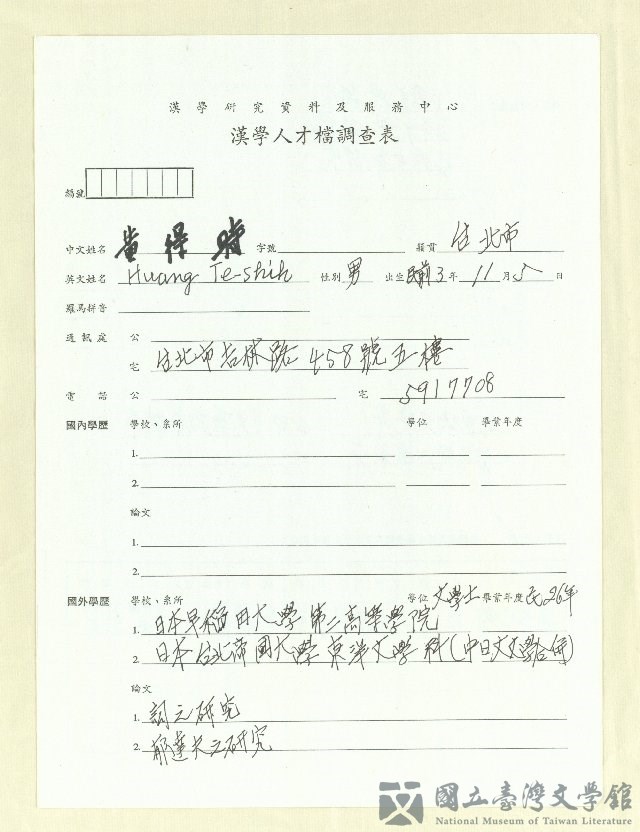 漢學研究資料及服務中心
漢學人才檔調查表
編號
中文姓名 黃得時 字號 籍貫 台北市
英文姓名 Huang Te-shih 性別 男 出生 民前3年 11月5日
羅馬拼音
通訊處 公
宅 台北市吉林路458號五樓
電話 公 宅 5917708
國內學歷 學校、系所 學位 畢業年度
1.
2.
論文
1.
2.
國外學歷 學校、系所 學位 文學士 畢業年度 民26年
1. 日本早稻田大學第二高等學院
2. 日本台北帝國大學東洋文學科(中日文文學合併)
論文
1. 詞之研究
2. 郁達夫之研究
國立臺灣文學館
National Museum of Taiwan Literature